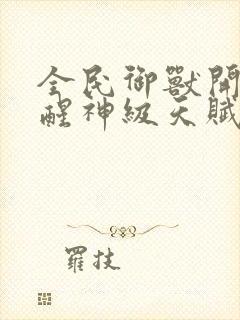 全民御獸開
醒神級天賦
羅技